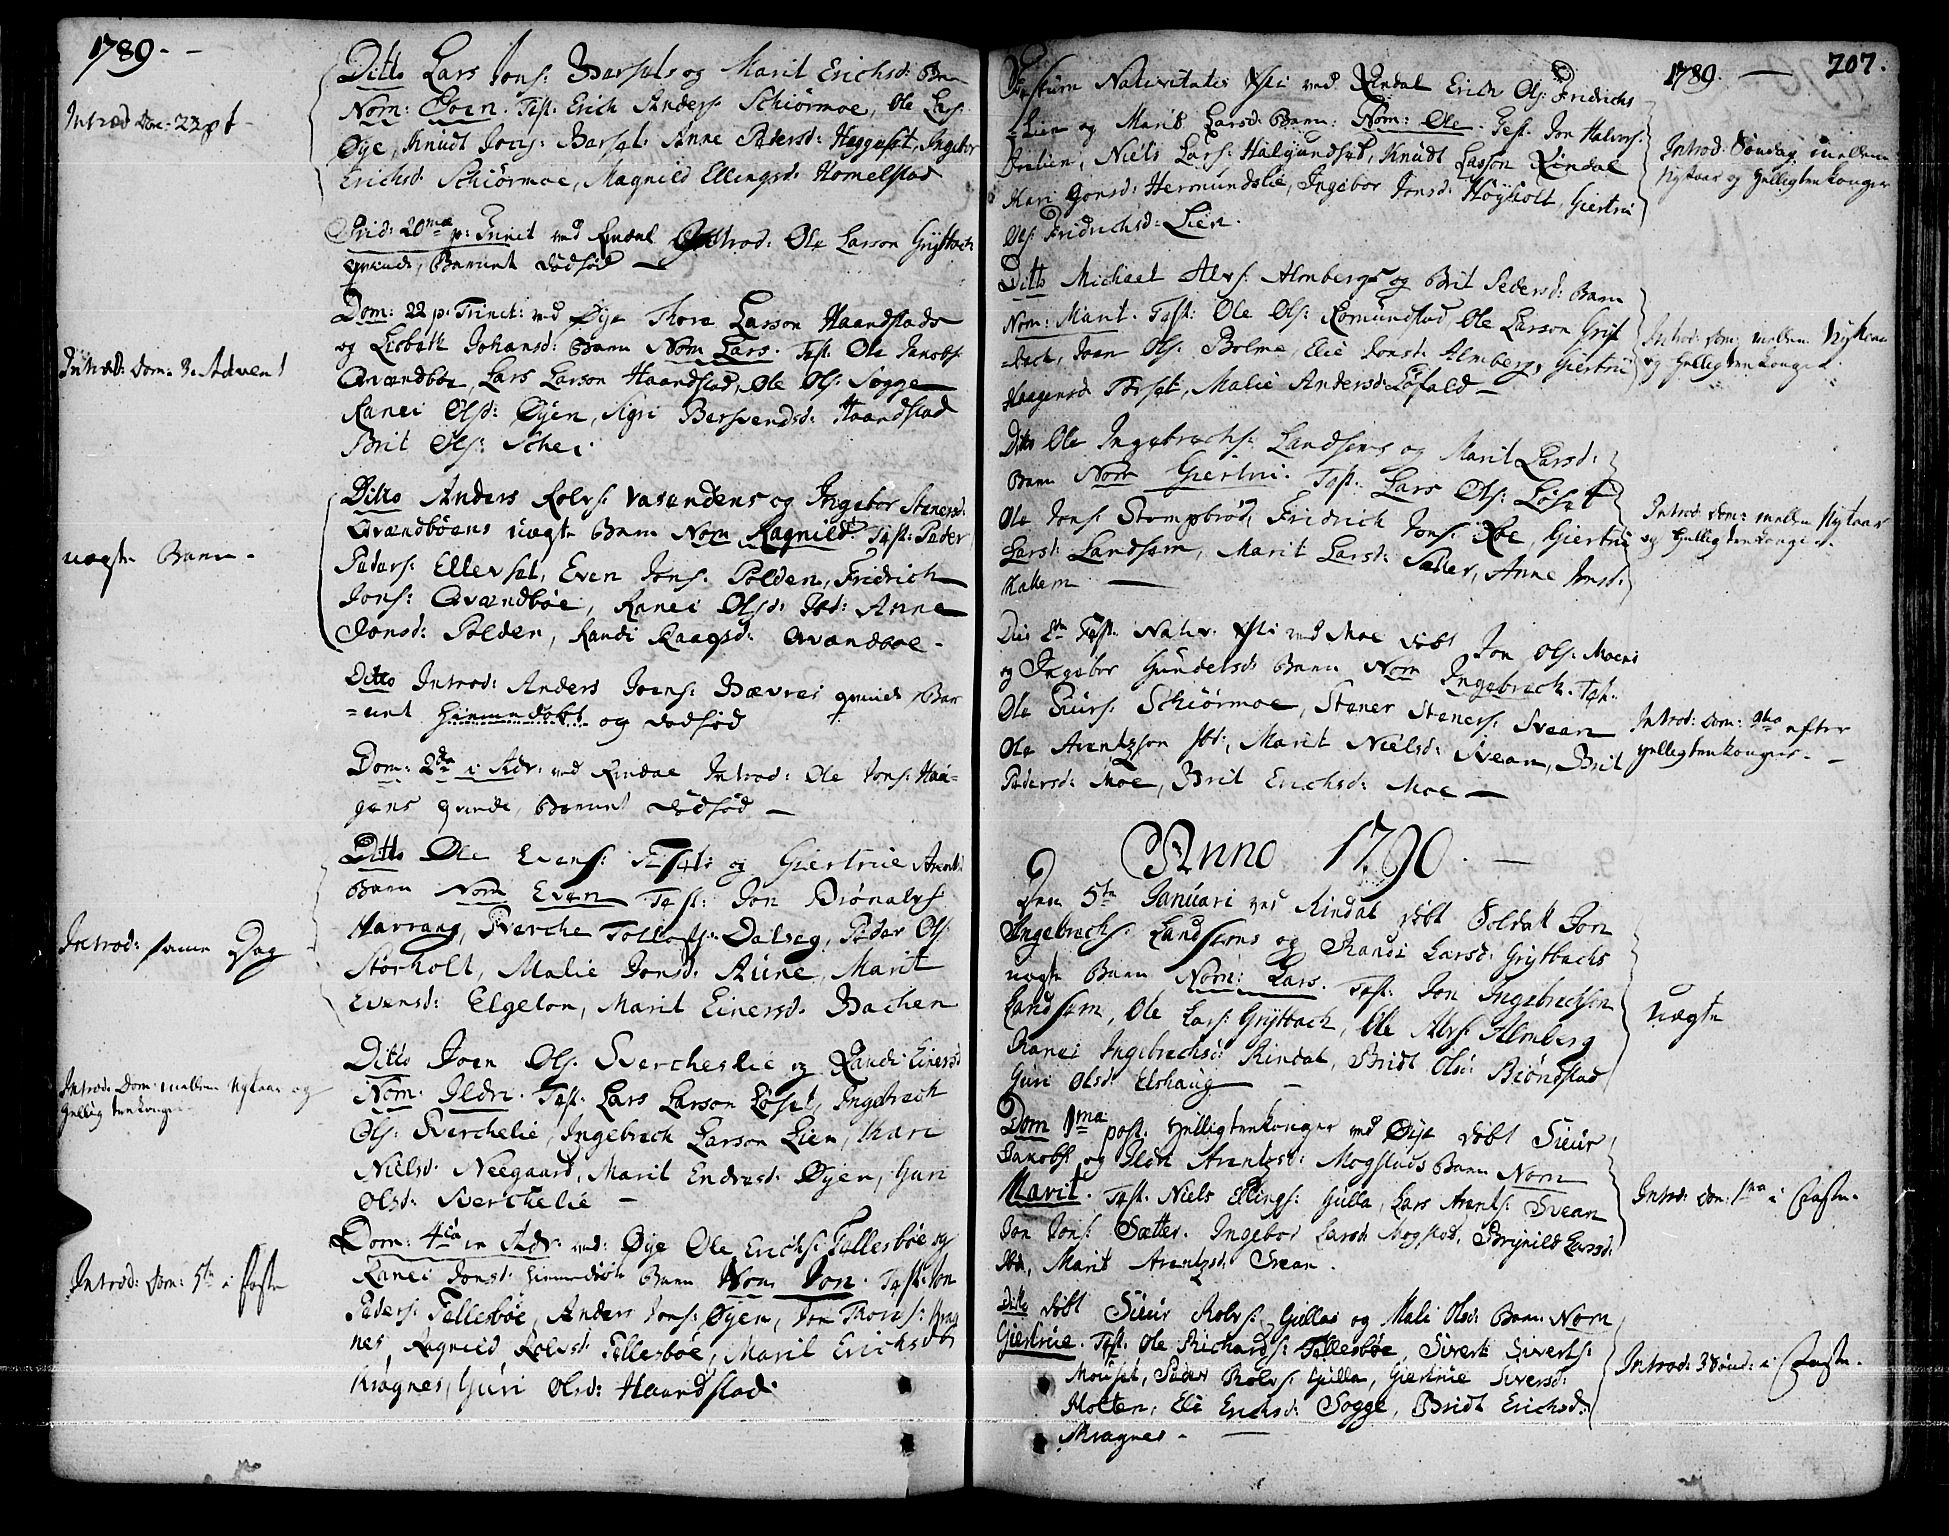 1789.
Ditto Lars Jons: Barsets og Marit Erichsd: Barn
Nom: Joen. Test: Erich Anders: Schiörmoe, Ole Lars:
Øye, Knudt Joens: Barset, Anne Pedersd: Heggeset, Ingebor
Erichsd: Schiörmoe, Magnild Ellingsd: Homelstad
Introd Dom: 23 p t
Frid: 20me p: Trinit ved Rindal Introd: Ole Larson Grytbach
qvinde, Barnet dödfød
Dom: 22 p. Trinit: ved Øye Thore Larson Haandstads
og Lisbeth Johansd: Barn Nom Lars. Test: Ole Jacobs:
Qvændböe, Lars Larson Haandstad, Ole Ols: Sogge
Ranei Olsd: Øyen, Sigri Barsvendsd: Haandstad
Brit Ols: Schei
Introd: Dom: 3. Advent
Ditto Anders Rolvs: Vasendens og Ingebor Stenersd:
Qvændböens uægte Barn Nom Ragnild. Test: Peder
Peders: Ellevset, Even Jons: Polden, Fridrich
Jons: Qvændböe, Ranei Olsd: Ibd: Anne
Jonsd: Polden, Randi Haagsd: Qvændboe
uægte Barn
Ditto Introd: Anders Joens: Bævres qvinde Bar
=net hiemedöbt og dödfød
Dom: 2da i Adv: ved Rindal Introd: Ole Jons: Haa=
gens qvinde, Barnet dödfød
Ditto Ole Evens: og Giertrue Arentsd:
Barn Nom Even Test: Jon Biönalvs:
Harrang, Sverche Tollofs: Dalseg, Peder Ols:
Storholt, Malie Jonsd: Aune, Marit
Evensd: Elgeton, Marit Einersd: Bachen
Introd: samme Dag
Ditto Joen Ols: Svercheslie og Randi Einersd:
Nom: Ildri. Test: Lars Larson Löset, Ingebrech
Ols: Sverchelie, Ingebrech Larson Lien, Kari
Nielsd: Neegaard, Marit Endresd: Øyen, Guri
Olsd: Sverchelie
Introd: Dom: mellem Nytaar og
Hellig trekonger
Dom: 4ta in Adv: ved: Øye Ole Erichs: Tellesböe og
Ranei Jonsd: hiemedöbte Barn Nom Jon. Test: Jon
Peders: Tellesböe, Anders Jons: Øyen, Jon Thores: Krog
nes Ragnild Rolvsd: Tellesböe, Marit Erichsd:
Krognes, Guri Olsd: Haandstad
Introd: Dom: 5te i Faste
1789. 207.
Festum Nativitatis Xsti ved Rindal Erich Ols: Fridrichs
Lien og Marit Larsd: Barn: Nom: Ole. Test: Jon Halvors:
Niels Lars: Halgundset, Knudt Larson Rindal
Kari Gonsd: Hermundslie, Ingebor Jonsd: Höyholt, Giertru
Ols: Fridrichsd: Lien.
Introd: Söndag imellem
Nytaar og Helligtrekonger
Ditto Michael Alvs: Almbergs og Brit Pedersd: Barn
Nom: Marit. Test: Ole Ols: Romundstad, Ole Larson Gryt
=bach, Joen Ols: Bolme, Elie Jonsd: Almberg, Giertru
Haagensd Forset, Malie Andersd: Löfald
Introd: Dom: mellem Nytaar
og Helligtrekonger
Ditto Ole Ingebrechs: Landsems og Marit Larsd:
Barn Nom Giertrui. Test: Lars Ols: Löset
Ole Jons: Stompbrod, Fridrich Jons: Roe, Giertru
Larsd: Landsem, Marit Larsd: Sæter, Anne Jonsd:
Kattem
Introd: Dom: mellem Nytaar
og Helligtrekonger.
Die 2da Fest: Nativ: Xsti ved Moe döbt Jon Ols: Moens
og Ingebor Gundersd: Barn Nom Ingebrech. Test:
Ole Siurs: Schiörmoe, Stener Steners: Svean
Ole Arentzson Ibd:, Marit Nielsd: Svean, Brit
Pedersd: Moe, Brit Erichsd: Moe
Introd: Dom: efter
Helligtrekonger.
Anno 1790.
Den 5te Januari ved Rindal döbt Soldat Jon
Ingebrechs: Landsems og Randi Larsd: Grytbachs
uægte Barn Nom: Lars. Test: Jon Ingebrechtson
Landsem, Ole Lars: Grytbach, Ole Alvs: Almberg
Ranei Ingebrechsd: Rindal, Bridt Olsd: Biöndstad
Guri Olsd: Elshaug
Uægte
Dom 1ma post Helligtrekonger ved Øye döbt Siur
Jacobs: og Ildri Arentzsd: Mogstads Barn Nom
Marit. Test: Niels Ellings: Gulla, Lars Arents: Svean
Jon Jons: Sætter. Ingebor Larsd: Mogstad, Brynild Larsd:
Ibd, Marit Arentzsd: Svean.
Introd: Dom: 1ma i Faste.
Ditto döbt Siur Rolvs: Gullas og Mali Olsd: Barn: Nom
Giertrue. Test: Ole Richards: Tellesböe, Sivert Siverts:
Mouset, Peder Rolvs: Gulla, Giertrue Siversd:
Holten, Eli Erichsd: Sogge, Bridt Erichsd:
Kragnes.
Introd: 3 Sönd: i Faste.